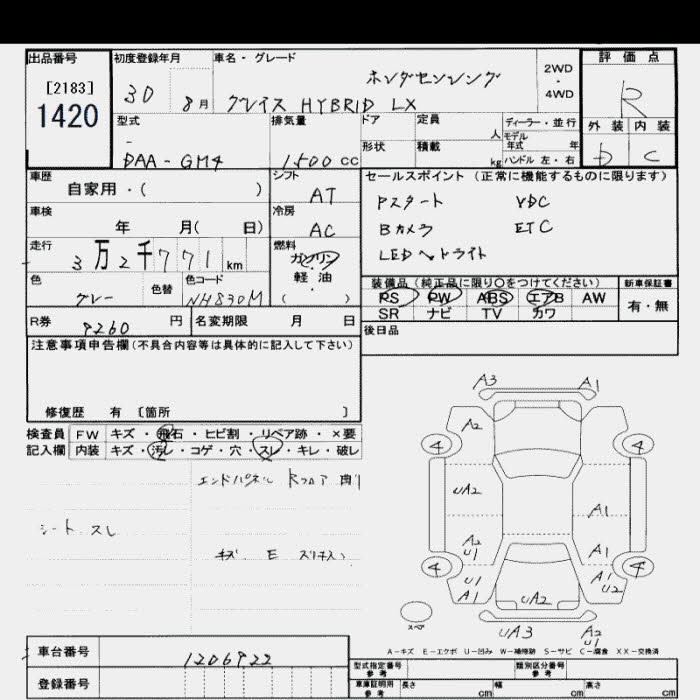 出品番号
[2183]
1420
初度登録年月
30 8月
車名・グレード
ホンダセンシング
グレイス HYBRID LX
2WD
・
4WD
評価点
R
外装 内装
D C
型式
DAA-GM4
排気量
1500 cc
ドア
定員 人
形状
積載 kg
ディーラー・並行
モデル年式 年
ハンドル 左・右
車歴
自家用・( )
シフト
AT
車検
年 月( 日)
冷房
AC
走行
3万2千771 km
燃料
ガソリン
・
軽油
( )
色
グレー
色替
色コード
NH830M
R券 9260 円
名変期限 月 日
セールスポイント (正常に機能するものに限ります)
Pスタート VDC
Bカメラ ETC
LEDヘッドライト
装備品(純正品に限り○をつけてください)
新車保証書
PS PW ABS エアB AW
SR ナビ TV カワ
有・無
後日品
注意事項申告欄(不具合内容等は具体的に記入して下さい)
修復歴 有 〔箇所 〕
検査員 FW キズ・飛石・ヒビ割・リペア跡・×要
記入欄 内装 キズ・汚レ・コゲ・穴・スレ・キレ・破レ
エンドパネル Rフロア 曲り
シート スレ
キズ E
A3 A1
A2
4 4
UA2
A1
A2
U1
A1
4 4
U1
A1
A1
U2
UA2
スペア
UA3
A2
U1
A-キズ E-エクボ U-凹み W-補修跡 S-サビ C-腐食 XX-交換済
車台番号
1206922
登録番号
型式指定番号
参考
類別区分番号
参考
車庫証明用
参考
長さ cm 幅 cm 高さ cm